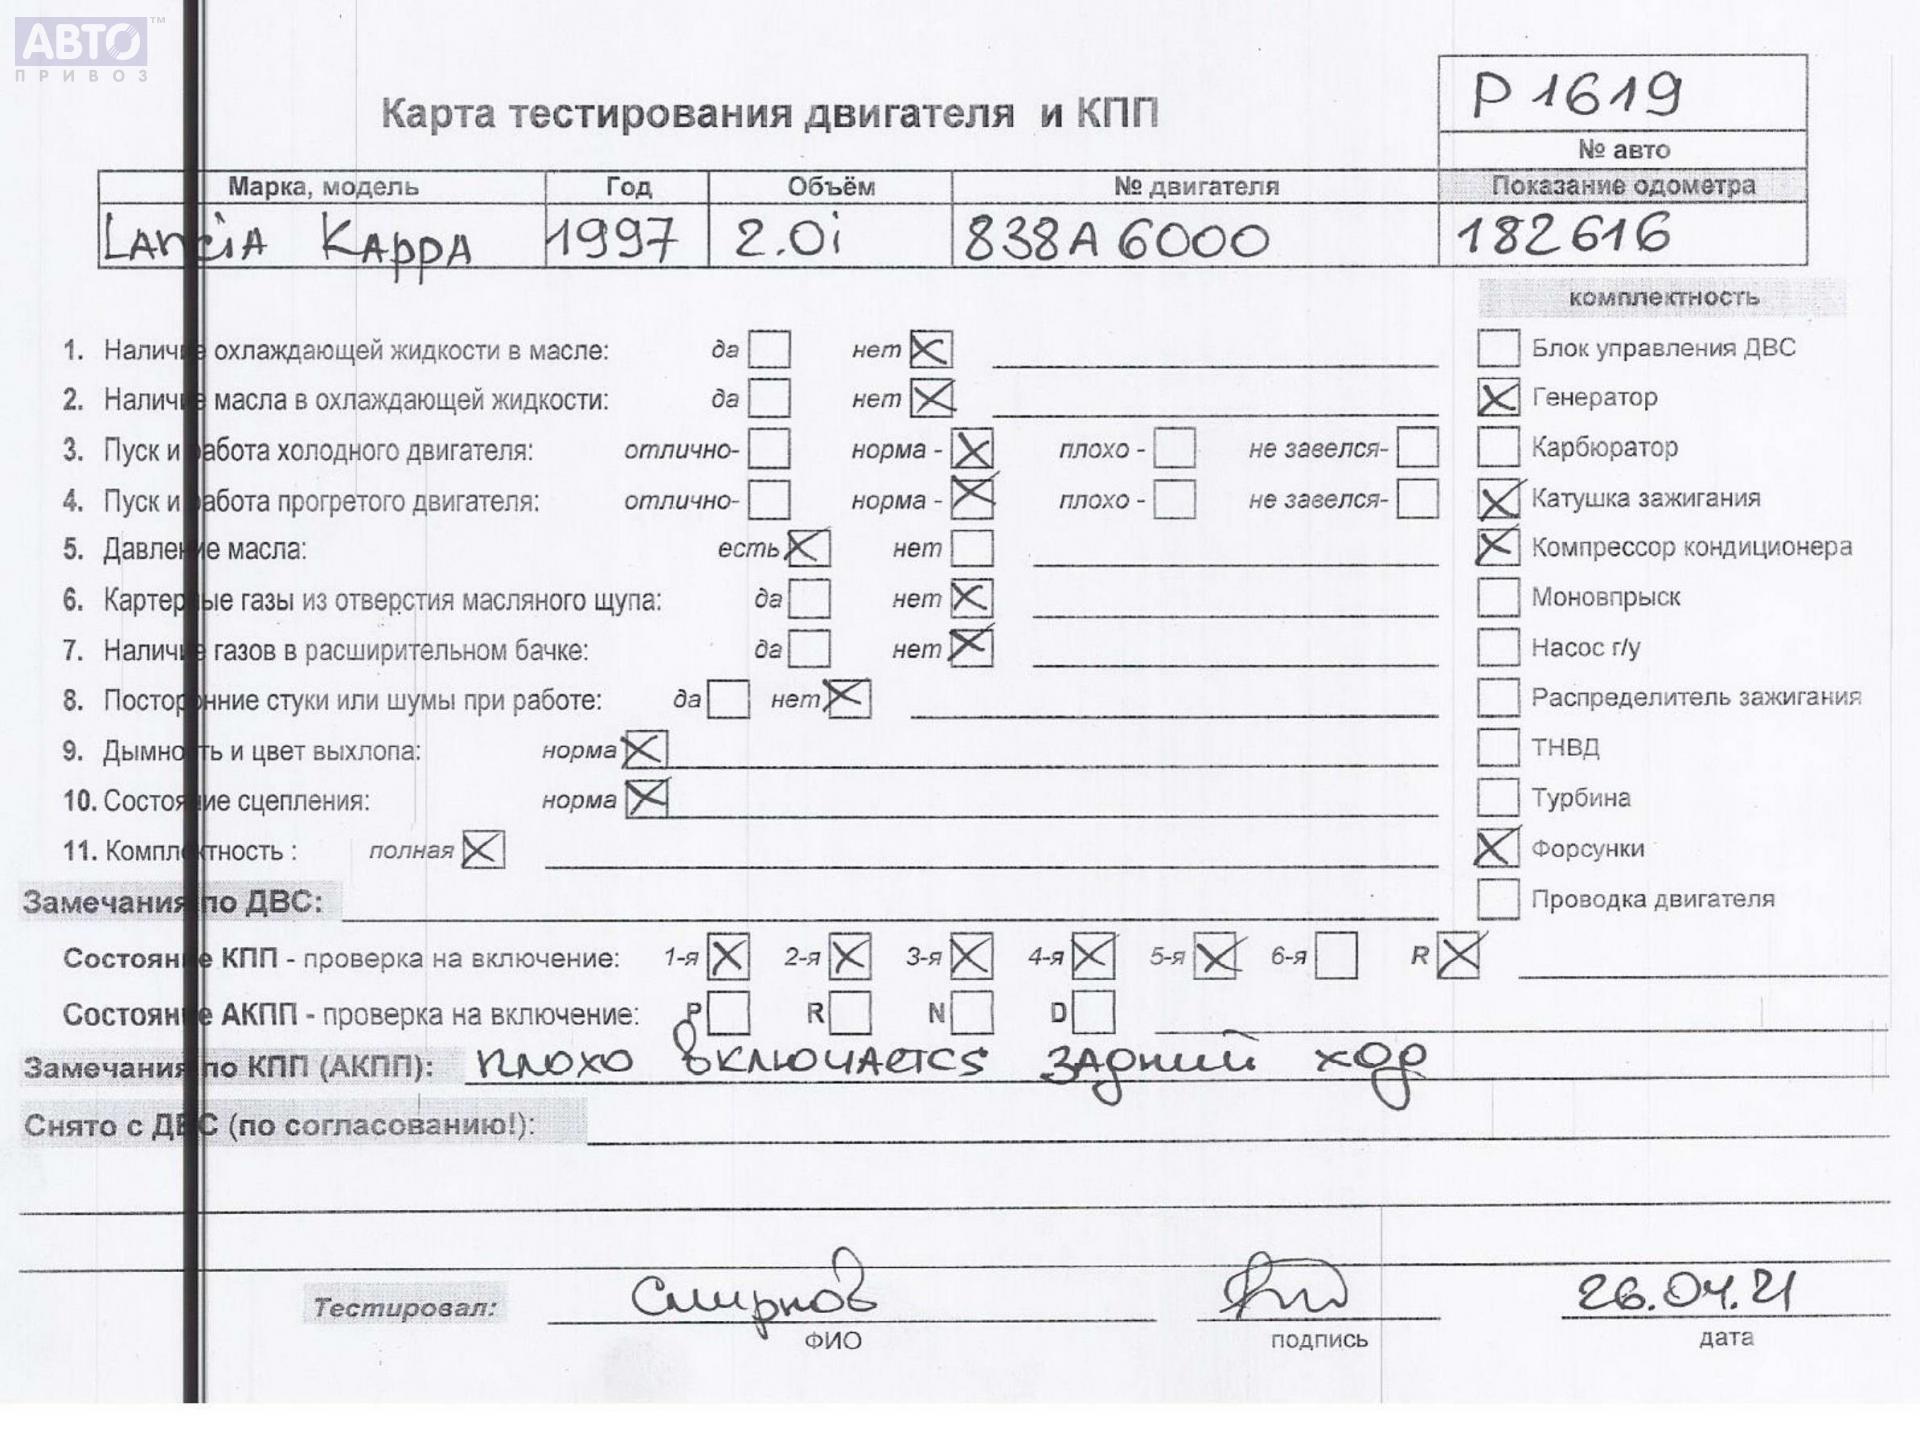 АВТО™
ПРИВОЗ
P1619
Карта тестирования двигателя и КПП
№ авто
Марка, модель Год Объём № двигателя Показание одометра
Lancia Kappa 1997 2.0i 838A6000 182616
комплектность
1. Наличие охлаждающей жидкости в масле: да нет Блок управления ДВС
2. Наличие масла в охлаждающей жидкости: да нет Генератор
3. Пуск и работа холодного двигателя: отлично- норма - плохо - не завелся- Карбюратор
4. Пуск и работа прогретого двигателя: отлично- норма - плохо - не завелся- Катушка зажигания
5. Давление масла: есть нет Компрессор кондиционера
6. Картерные газы из отверстия масляного щупа: да нет Моновпрыск
7. Наличие газов в расширительном бачке: да нет Насос г/у
8. Посторонние стуки или шумы при работе: да нет Распределитель зажигания
9. Дымность и цвет выхлопа: норма ТНВД
10. Состояние сцепления: норма Турбина
11. Комплектность : полная Форсунки
Замечания по ДВС: Проводка двигателя
Состояние КПП - проверка на включение: 1-я 2-я 3-я 4-я 5-я 6-я R
Состояние АКПП - проверка на включение: P R N D
Замечания по КПП (АКПП): плохо включается задний ход
Снято с ДВС (по согласованию!):
Тестировал: Смирнов 26.04.21
ФИО подпись дата